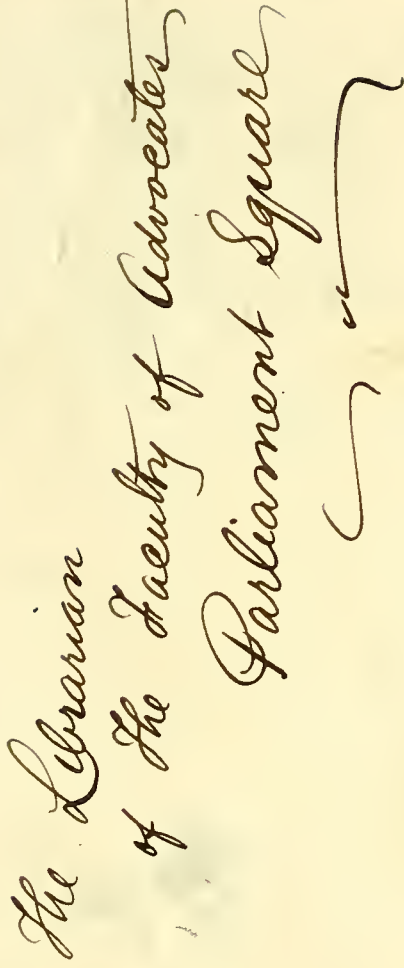 The Librarian
of The Faculty of Advocates
Parliament Square